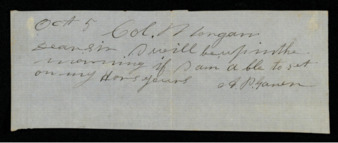 Oct 5
Col. Morgan
Dear sir I will be up in the
morning if I am able to set
on my Horse yours